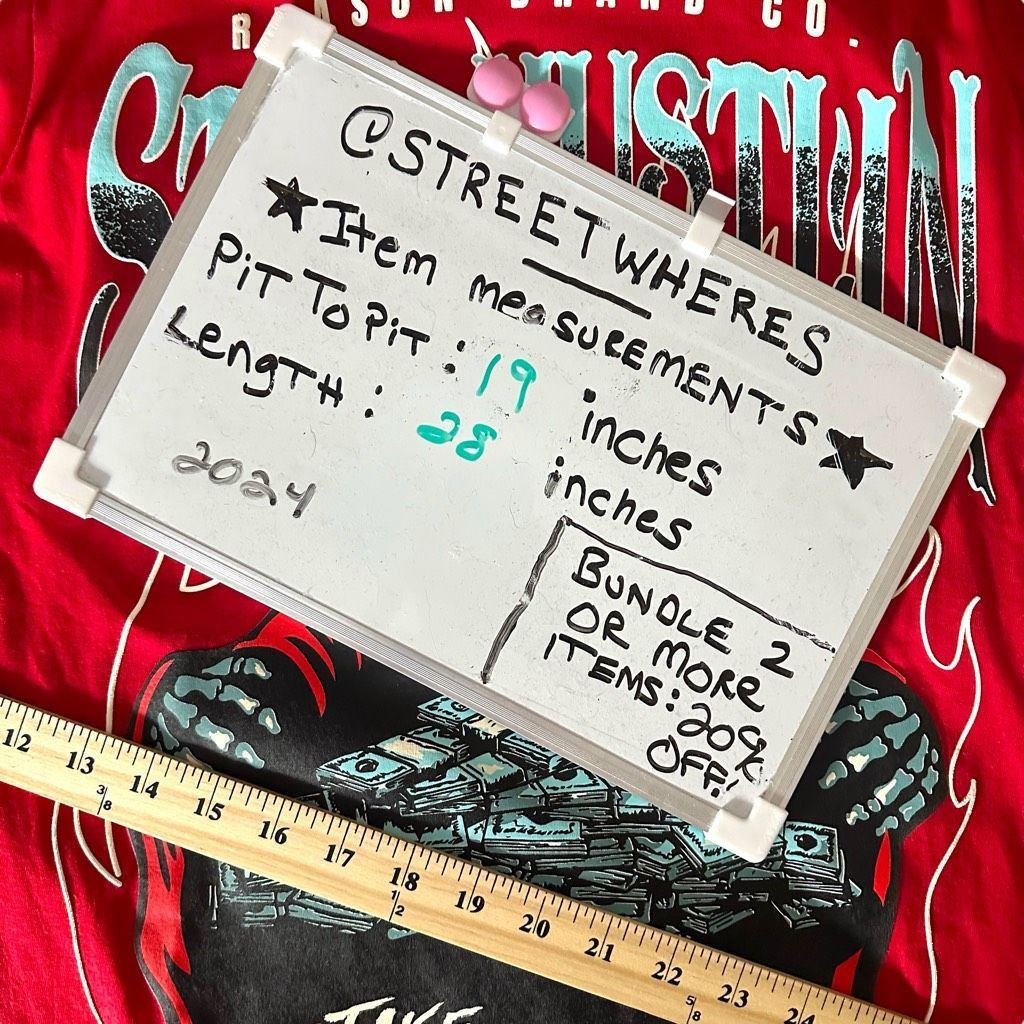 R ASON BRAND CO.
@STREETWHERES
★Item measUREMENTS★
PiT To PiT : 19 inches
Length : 28 inches
2024
BUNDLE 2
OR MORE
ITEMS: 20%
OFF!
12 13 14 15 16 17 18 19 20 21 22 23 24
3/8 1/2 5/8
TAKE